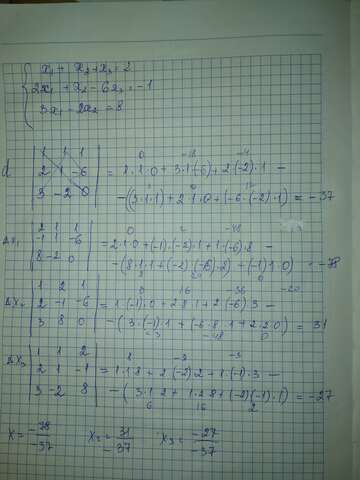 x₁ + x₂ + x₃ = 2
2x₁ + x₂ - 6x₃ = -1
3x₁ - 2x₂ = 8
d
1 1 1
2 1 -6
3 -2 0
0 -18 -4
= 1·1·0 + 3·1·(-6) + 2·(-2)·1 -
-((3·1·1) + 2·1·0 + (-6·(-2)·1) = -37
Δx₁
2 1 1
-1 1 -6
8 -2 0
= 2·1·0 + (-1)·(-2)·1 + 1·(-6)·8 -
-(8·1·1 + (-2)·(-6)·2) + (-1)·1·0) = -78
Δx₂
1 2 1
2 -1 -6
3 8 0
0 16 -36
= 1·(-1)·0 + 2·8·1 + 2·(-6)·3 -
-(3·(-1)·1 + (-6·8·1 + 2·2·0) = 31
-3 -48 0
Δx₃
1 1 2
2 1 -1
3 -2 8
= 1·1·8 + 2·(-2)·2 + 1·(-1)·3 -
-(3·1·2 + 1·2·8 + (-2)·(-1)·1) = -27
6 16 2
x = -78/-37 x₂ = 31/-37 x₃ = -27/-37